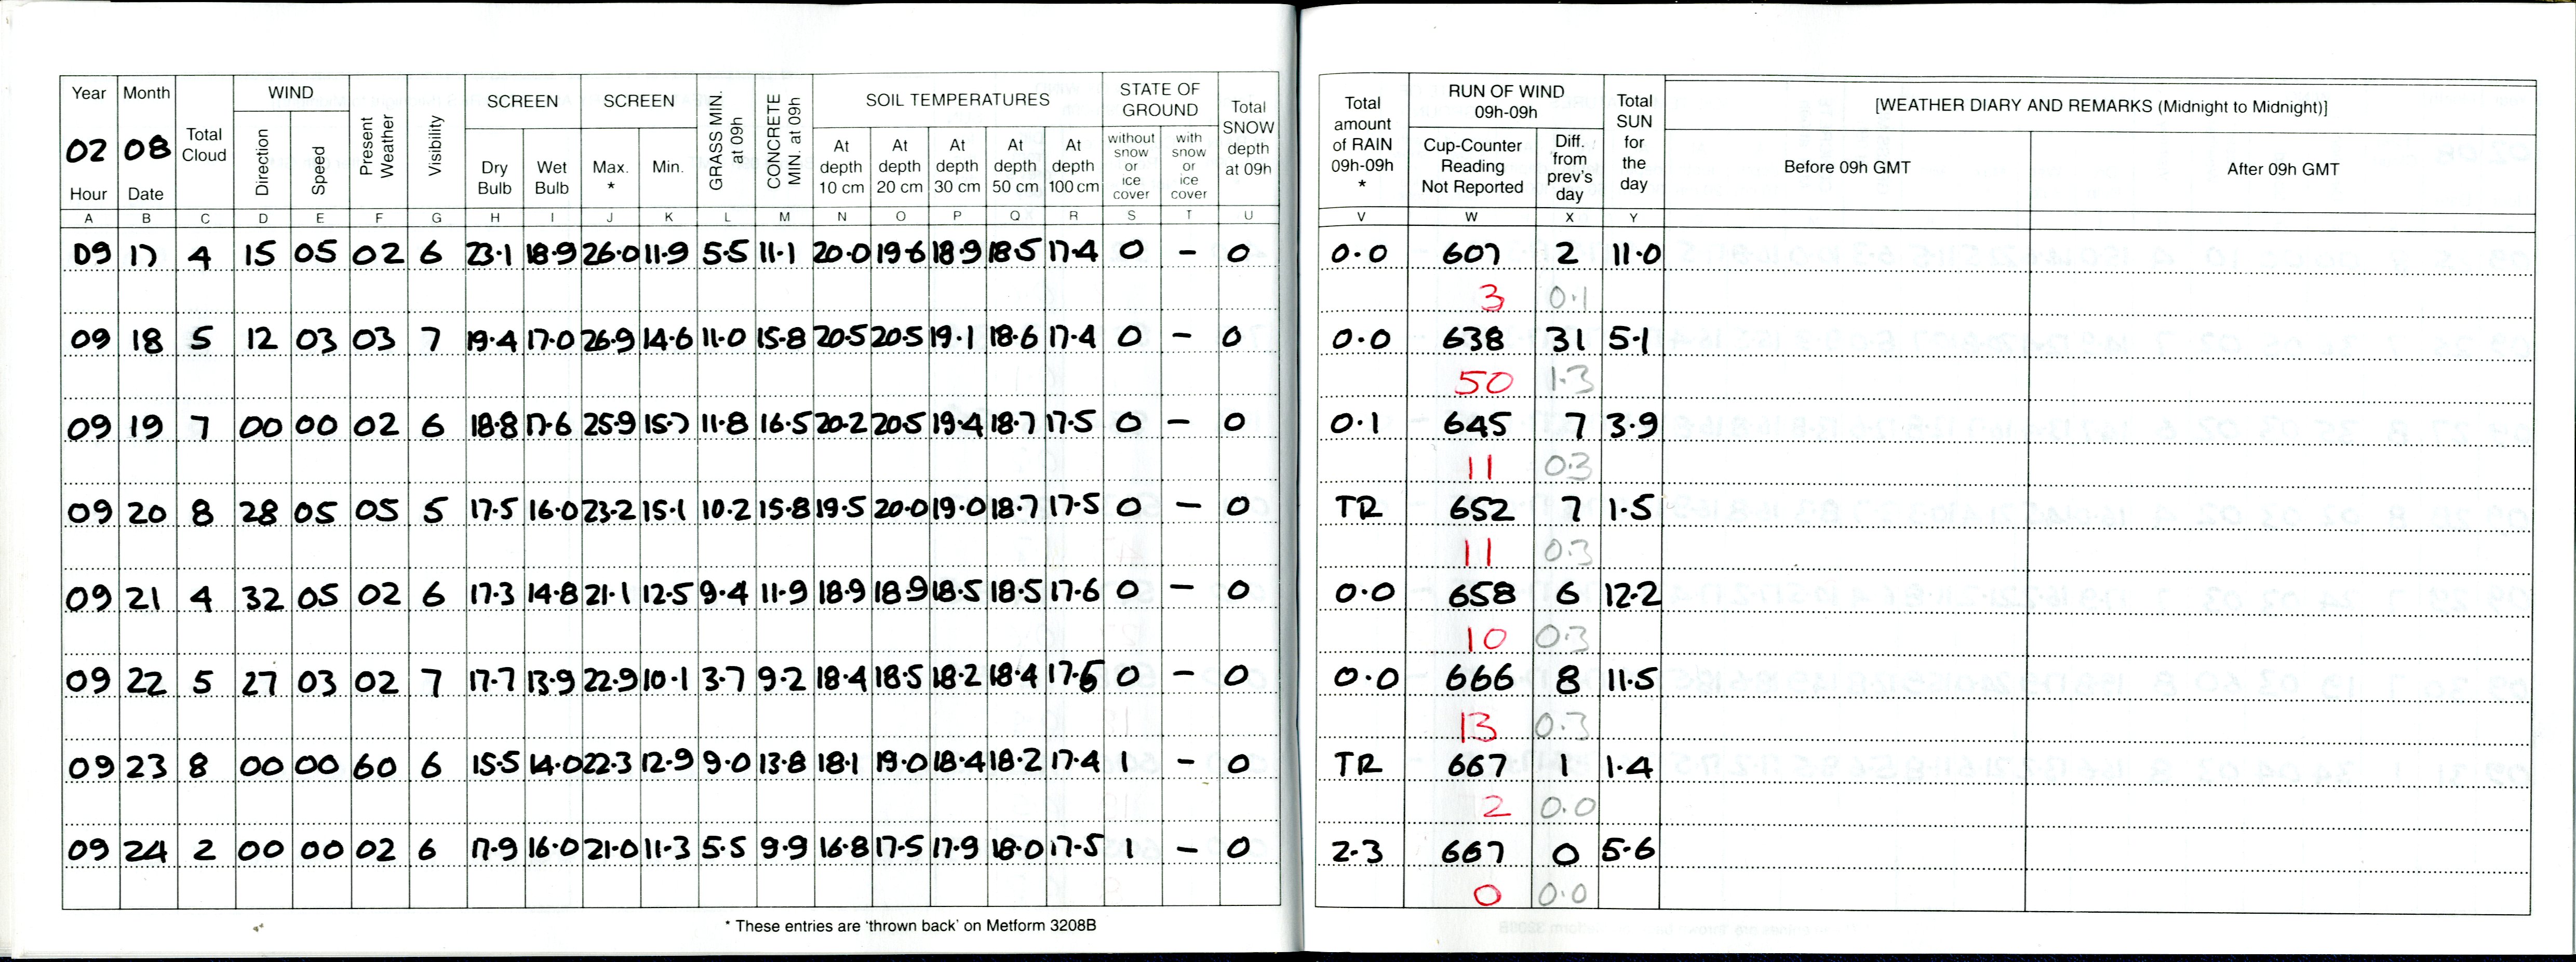 Year Month Total Cloud WIND Present Weather Visibility SCREEN SCREEN GRASS MIN. at 09h CONCRETE MIN. at 09h SOIL TEMPERATURES STATE OF GROUND Total SNOW depth at 09h Total amount of RAIN 09h-09h * RUN OF WIND 09h-09h Total SUN for the day [WEATHER DIARY AND REMARKS (Midnight to Midnight)]
02 08 Direction Speed Dry Bulb Wet Bulb Max. * Min. At depth 10 cm At depth 20 cm At depth 30 cm At depth 50 cm At depth 100 cm without snow or ice cover with snow or ice cover Cup-Counter Reading Not Reported Diff. from prev's day Before 09h GMT After 09h GMT
Hour Date
A B C D E F G H I J K L M N O P Q R S T U V W X Y
09 17 4 15 05 02 6 23.1 18.9 26.0 11.9 5.5 11.1 20.0 19.6 18.9 18.5 17.4 0 – 0 0.0 607 2 11.0
3 0.1
09 18 5 12 03 03 7 19.4 17.0 26.9 14.6 11.0 15.8 20.5 20.5 19.1 18.6 17.4 0 – 0 0.0 638 31 5.1
50 1.3
09 19 7 00 00 02 6 18.8 17.6 25.9 15.7 11.8 16.5 20.2 20.5 19.4 18.7 17.5 0 – 0 0.1 645 7 3.9
11 0.3
09 20 8 28 05 05 5 17.5 16.0 23.2 15.1 10.2 15.8 19.5 20.0 19.0 18.7 17.5 0 – 0 TR 652 7 1.5
11 0.3
09 21 4 32 05 02 6 17.3 14.8 21.1 12.5 9.4 11.9 18.9 18.9 18.5 18.5 17.6 0 – 0 0.0 658 6 12.2
10 0.3
09 22 5 27 03 02 7 17.7 13.9 22.9 10.1 3.7 9.2 18.4 18.5 18.2 18.4 17.6 0 – 0 0.0 666 8 11.5
13 0.3
09 23 8 00 00 60 6 15.5 14.0 22.3 12.9 9.0 13.8 18.1 19.0 18.4 18.2 17.4 1 – 0 TR 667 1 1.4
2 0.0
09 24 2 00 00 02 6 17.9 16.0 21.0 11.3 5.5 9.9 16.8 17.5 17.9 18.0 17.5 1 – 0 2.3 667 0 5.6
0 0.0
* These entries are 'thrown back' on Metform 3208B